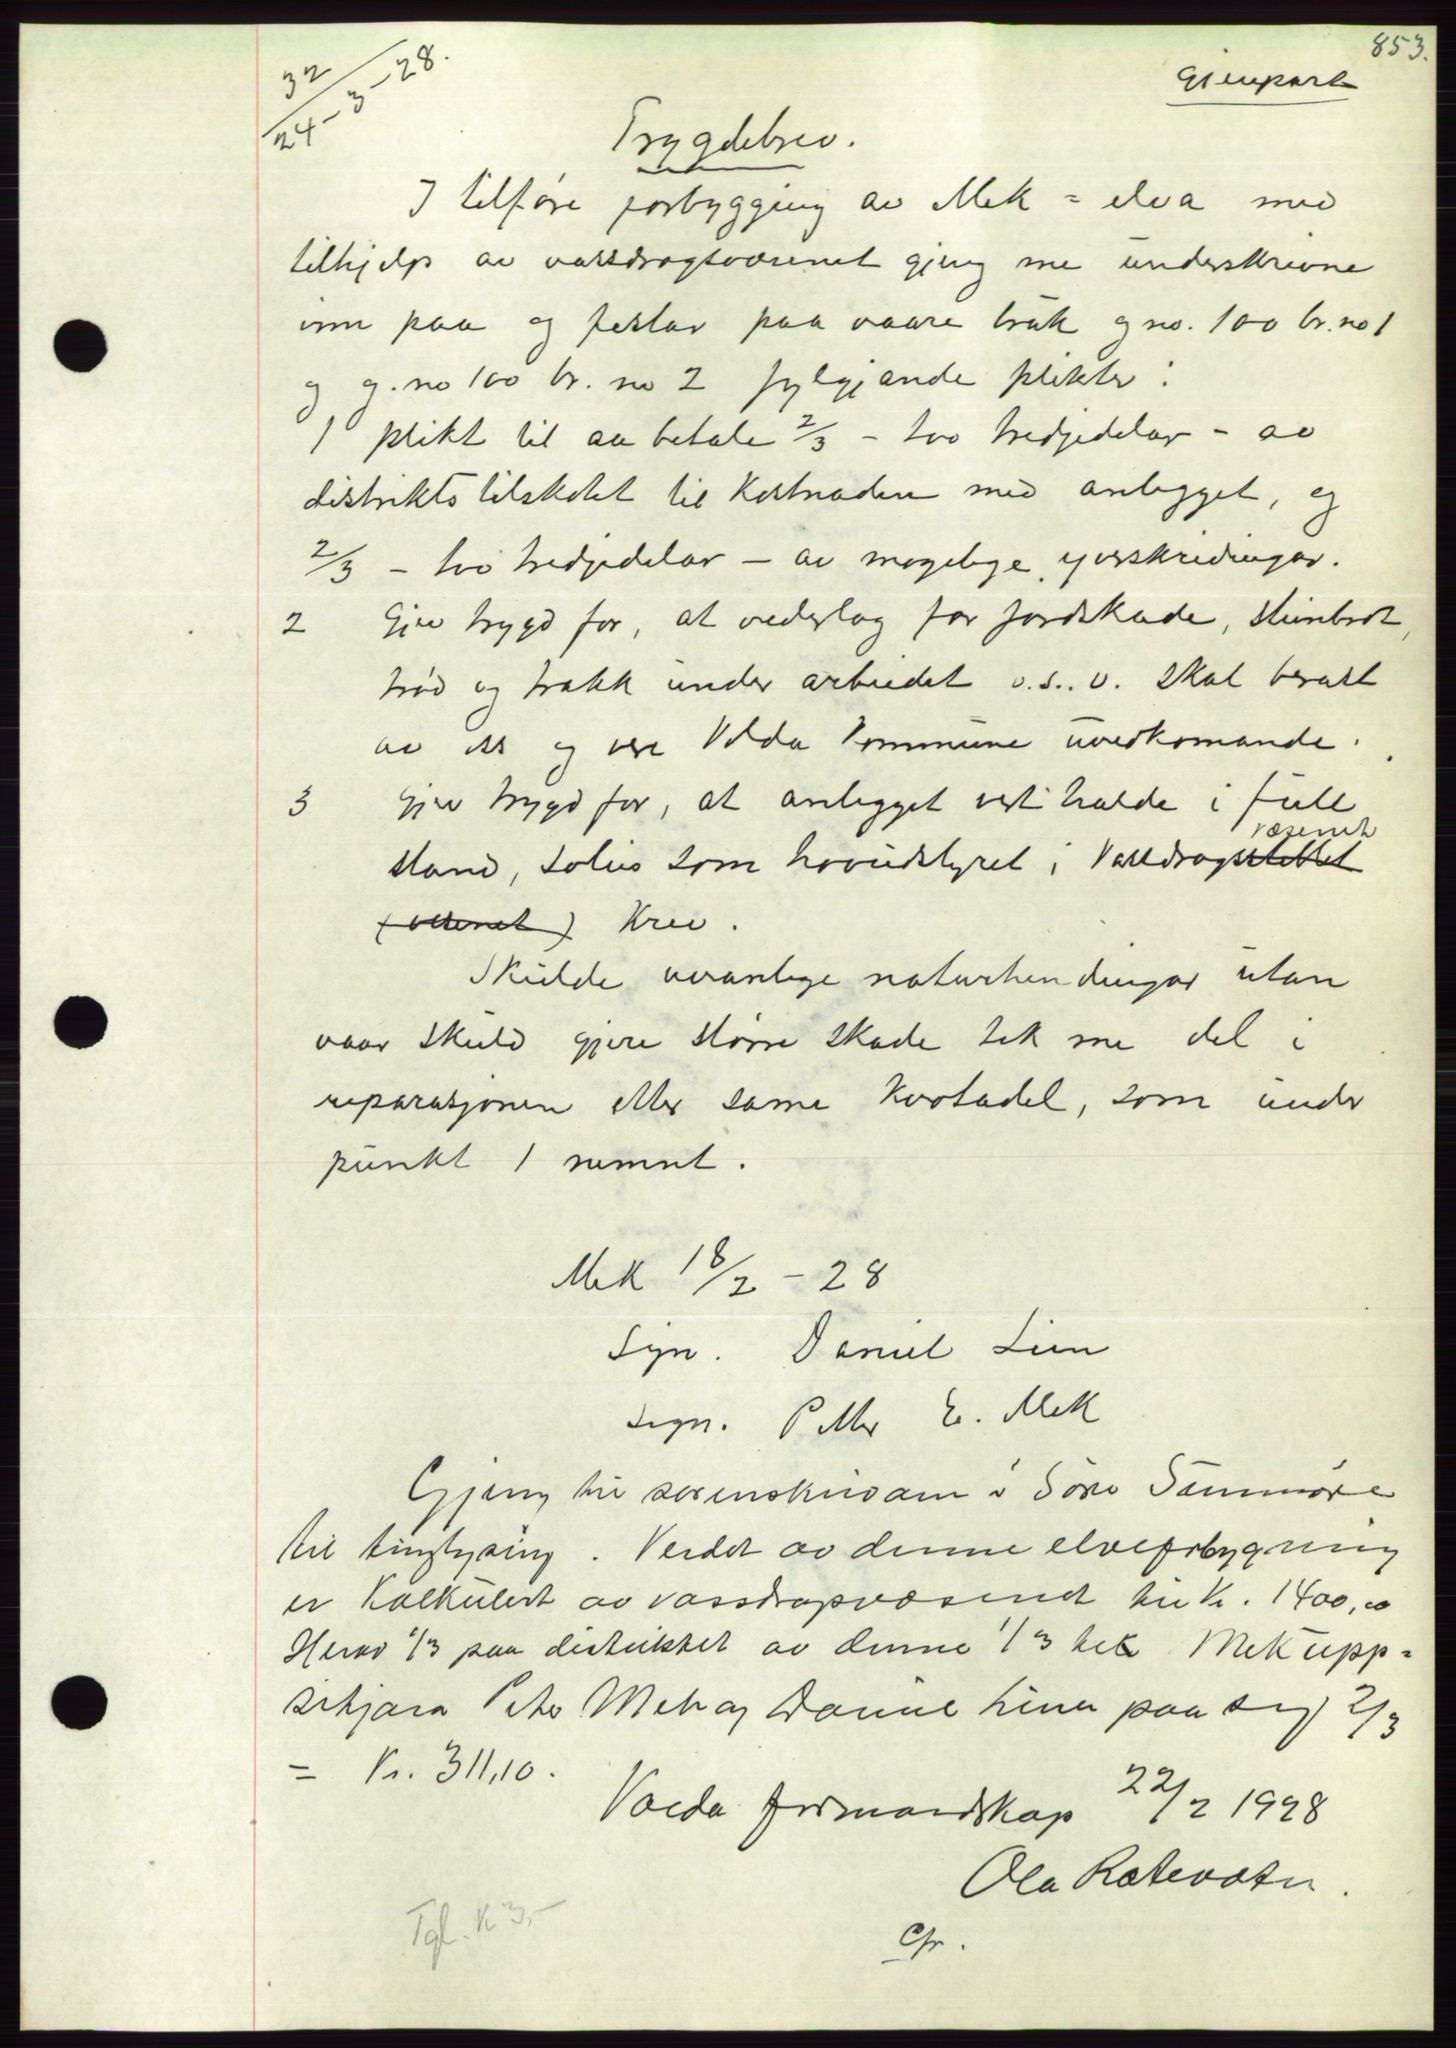 853.
32
24-3-28.
Gjenpart
Trygdebrev.
I tilføre forbygging av Mek = elva med
tilhjelp av vassdragsvæsenet gjeng me underskrivne
inn paa og festar paa vaare bruk g no. 100 br. no 1
og g. no 100 br. no 2 fylgjande plikter:
1 plikt til aa betale 2/3 - tvo tredjedelar - av
distriktstilskotet til kostnaden med anlegget, og
2/3 - tvo tredjedelar - av mogelege yverskridingar.
2 Gjev trygd for, at vederlag for jordskade, steinbrot,
trød og trakk under arbeidet o.s.v. skal berast
av oss og vere Volda kommune uvedkomande.
3 Gjev trygd for, at anlegget vert halde i full
stand, soleis som hovudstyret i Vassdragsstellet væsenet
(væsenet) krev.
Skulde uvanlege naturhendingar utan
vaar skuld gjere større skade tek me del i
reparasjonen etter same kvotadel, som under
punkt 1 nemnt.
Mek 18/2 - 28
Sign. Daniel Lien
Sign. Petter E. Mek
Gjeng til sorenskrivaren i Søre Sunnmøre
til tinglysing. Verdet av denne elveforbygning
er kalkulert av vassdragsvæsenet til kr. 1400,00
Herav 1/3 paa distriktet av denne 1/3 tek Mek upp=
sitjara Peter Mek og Daniel Lien paa seg 2/3
= Kr. 311,10.
Volda formandskap 22/2 1928
Ola Rotevatn.
Cfr.
Tgl. k 3,-